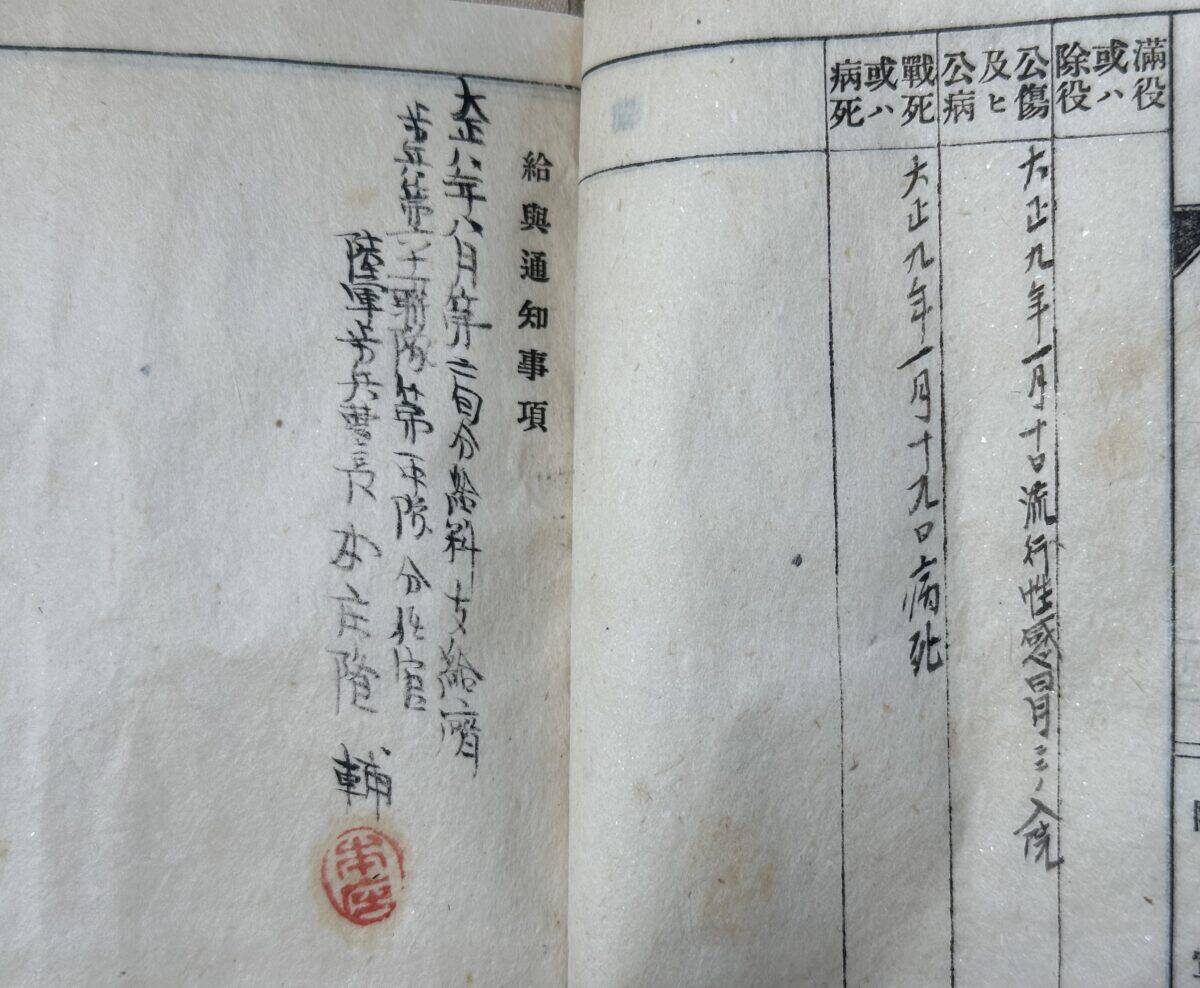 滿役或ハ除役
公傷及ヒ公病
大正九年一月十日流行性感冒ニテ入院
戰死或ハ病死
大正九年一月十九日病死
給與通知事項
大正八年八月第二旬分給料支給濟
聯隊第 中隊分任官
陸軍歩兵曹長 本庄隆輔
本庄